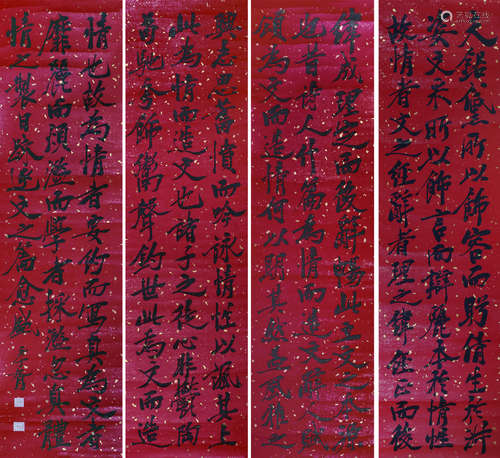 夫鉛黛所以飾容而盼倩生於淑
姿文采所以飾言而辯麗本於情性
故情者文之經辭者理之緯經正而後
緯成理定而後辭暢此立文之本源
也昔詩人什篇為情而造文辭人賦
頌為文而造情何以明其然盖風雅之
興志思蓄憤而吟詠情性以諷其上
此為情而造文也諸子之徒心非鬱陶
苟馳夸飾鬻聲釣世此為文而造
情也故為情者要約而寫真為文者
靡麗而煩濫而學者採濫忽真體
情之製日疏逐文之篇愈盛